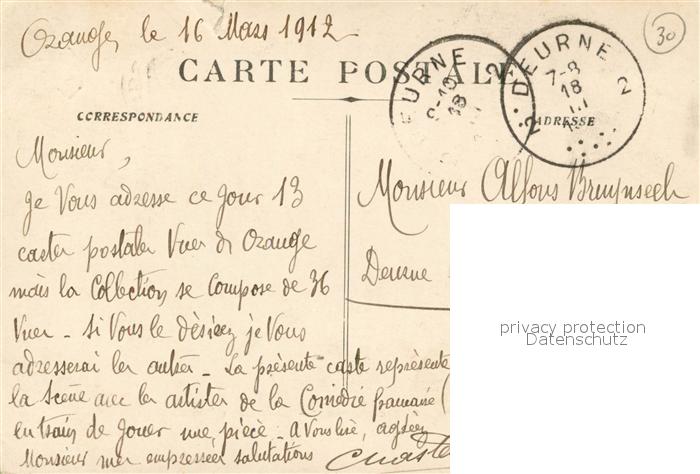 Orange, le 16 Mars 1912
30
CARTE POSTALE
EURNE
18
2
DEURNE
7-8
18
III
2
2
CORRESPONDANCE
ADRESSE
Monsieur,
Je Vous adresse ce Jour 13
cartes postales Vues d' Orange
mais la Collection se Compose de 36
Vues - Si Vous le désirez je Vous
adresserai les autres - La présente carte représente
la Scène avec les artistes de la Comédie française (
en train de Jouer une pièce - A Vous lire, agréez
Monsieur mes empressées salutations
Monsieur Alfons Bruynseels
Deurne
privacy protection
Datenschutz